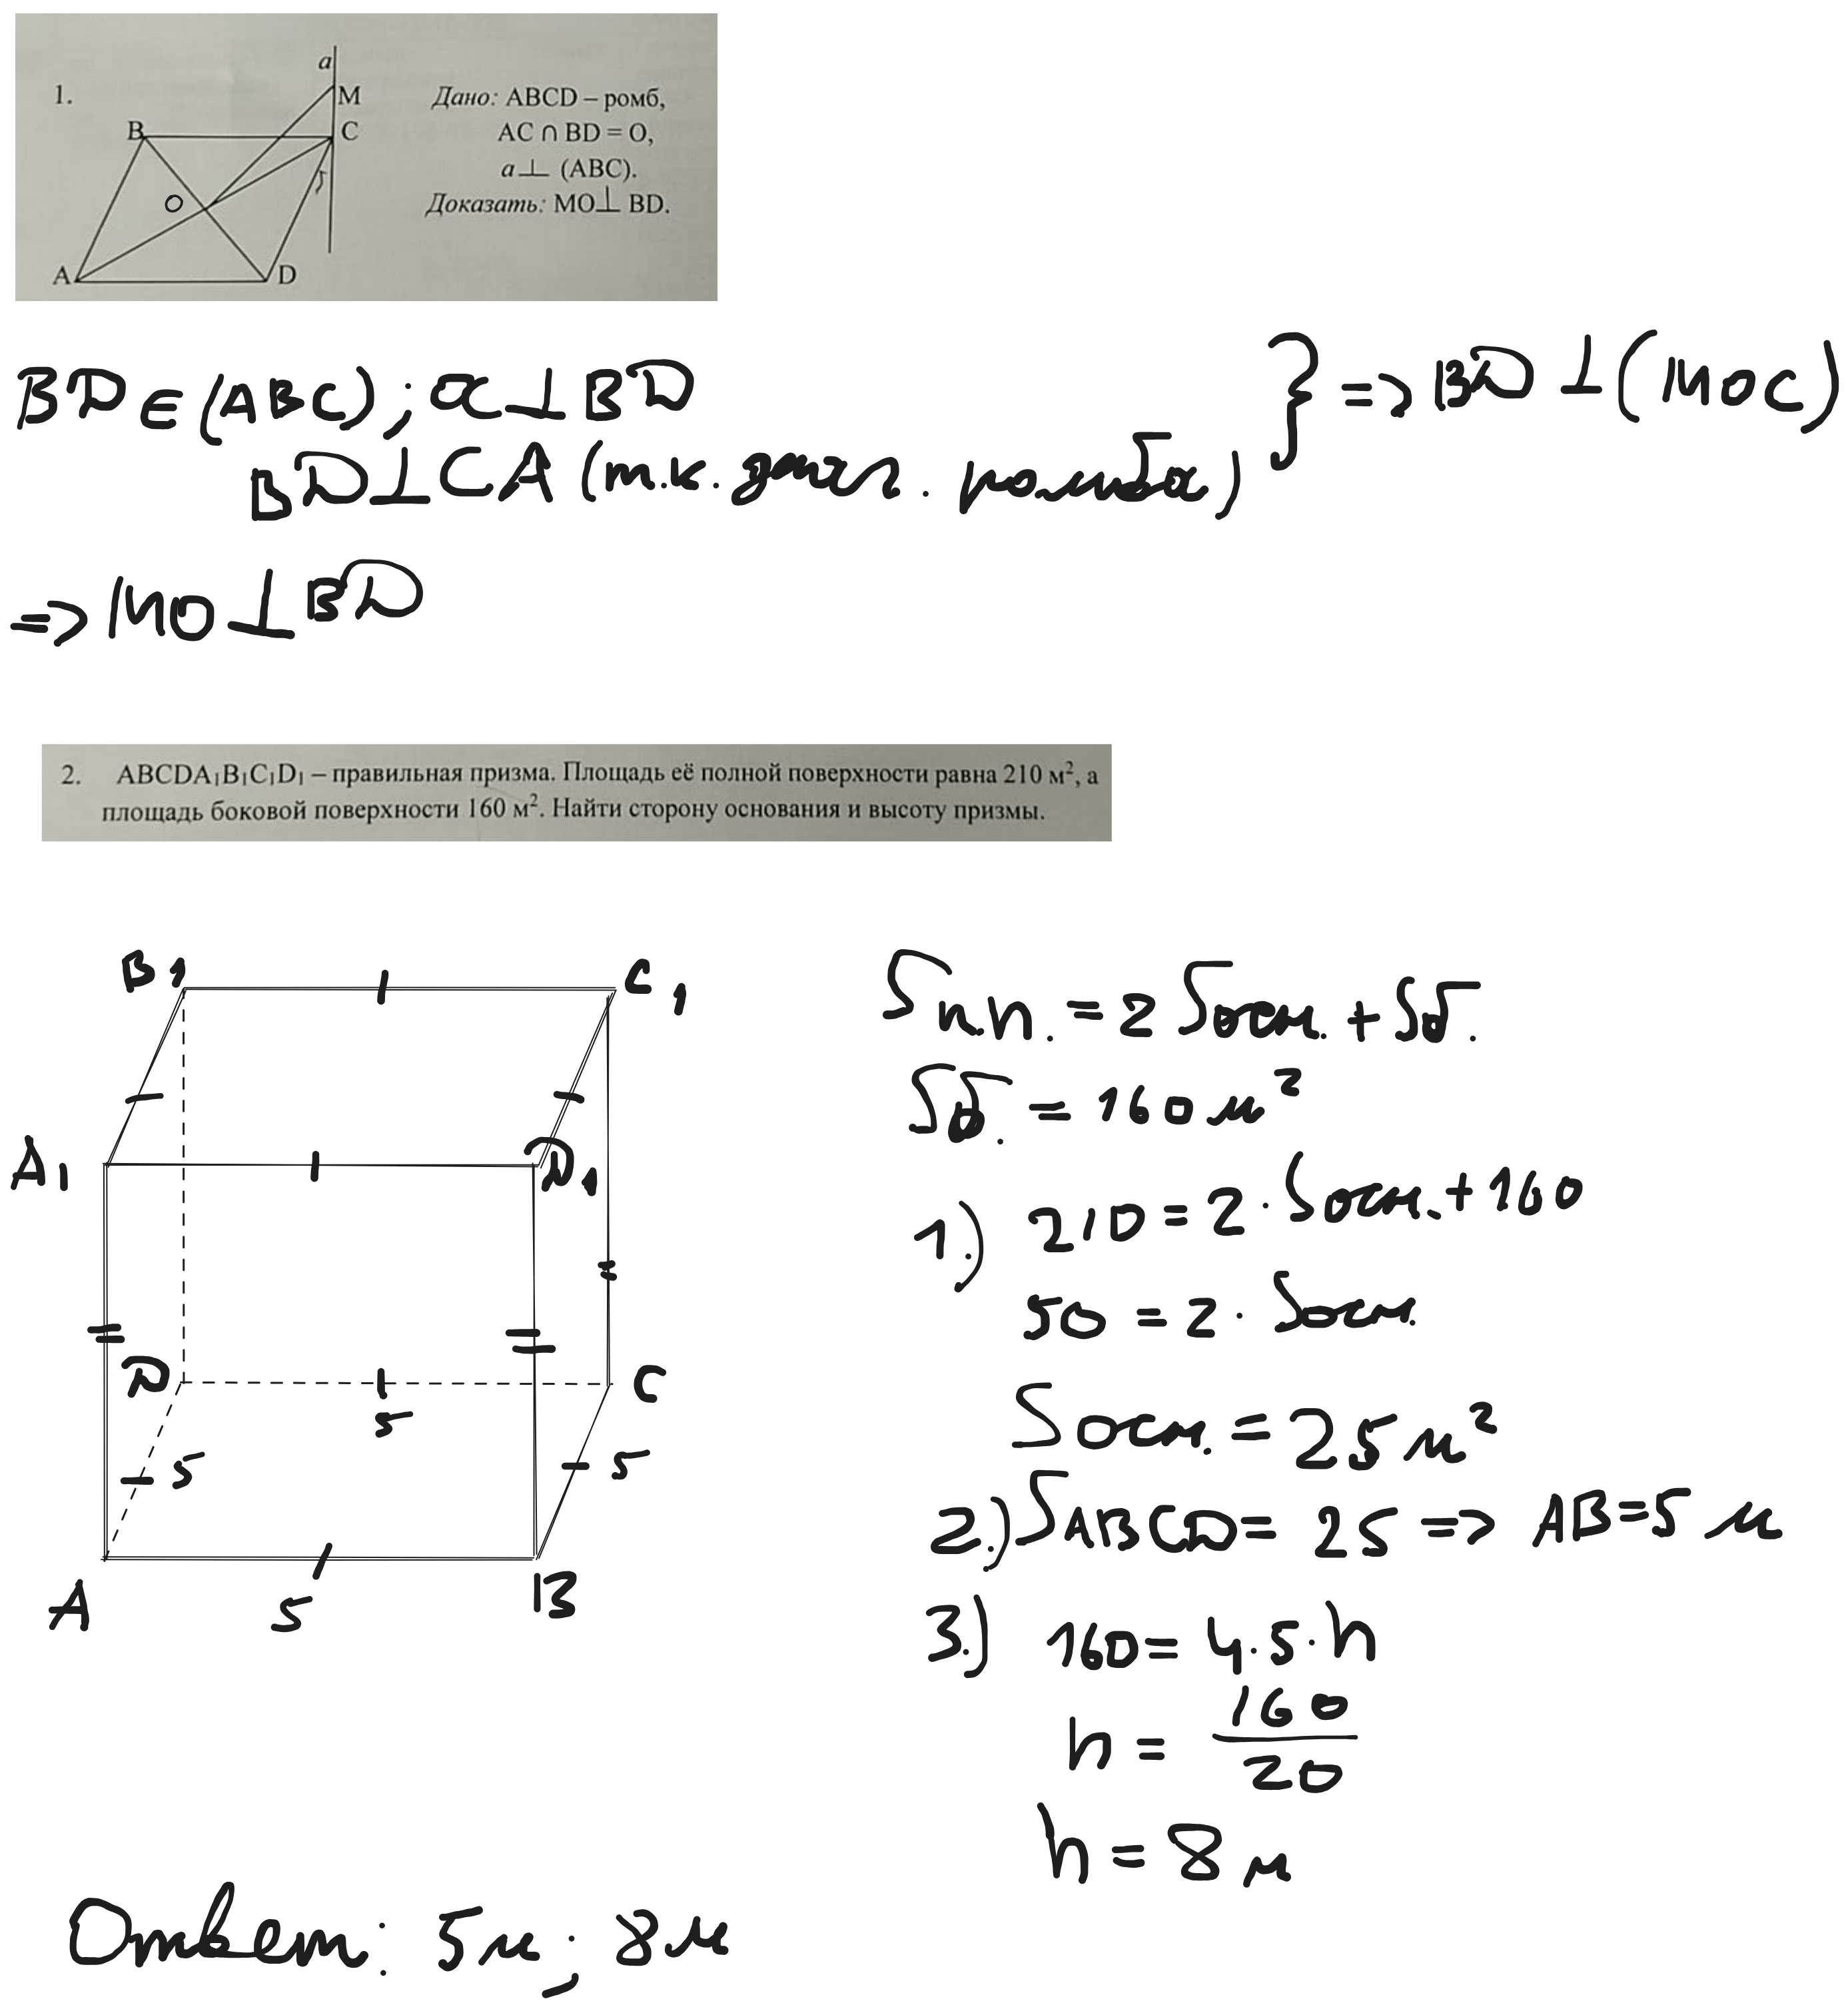 1.
a
M
B
C
O
A
D
Дано: ABCD – ромб,
AC ∩ BD = O,
a ⊥ (ABC).
Доказать: MO ⊥ BD.
BD ∈ (ABC); a ⊥ BD } => BD ⊥ (MOC)
BD ⊥ CA (т.к. диаг. ромба)
=> MO ⊥ BD
2. ABCDA₁B₁C₁D₁ – правильная призма. Площадь её полной поверхности равна 210 м², а
площадь боковой поверхности 160 м². Найти сторону основания и высоту призмы.
B1
C1
A1
D1
D
C
5
5
5
A
B
5
Sп.п. = 2 Sосн. + Sб.
Sб. = 160 м²
1.) 210 = 2 · Sосн. + 160
50 = 2 · Sосн.
Sосн. = 25 м²
2.) SABCD = 25 => AB = 5 м
3.) 160 = 4 · 5 · h
h = 160/20
h = 8 м
Ответ: 5м; 8м